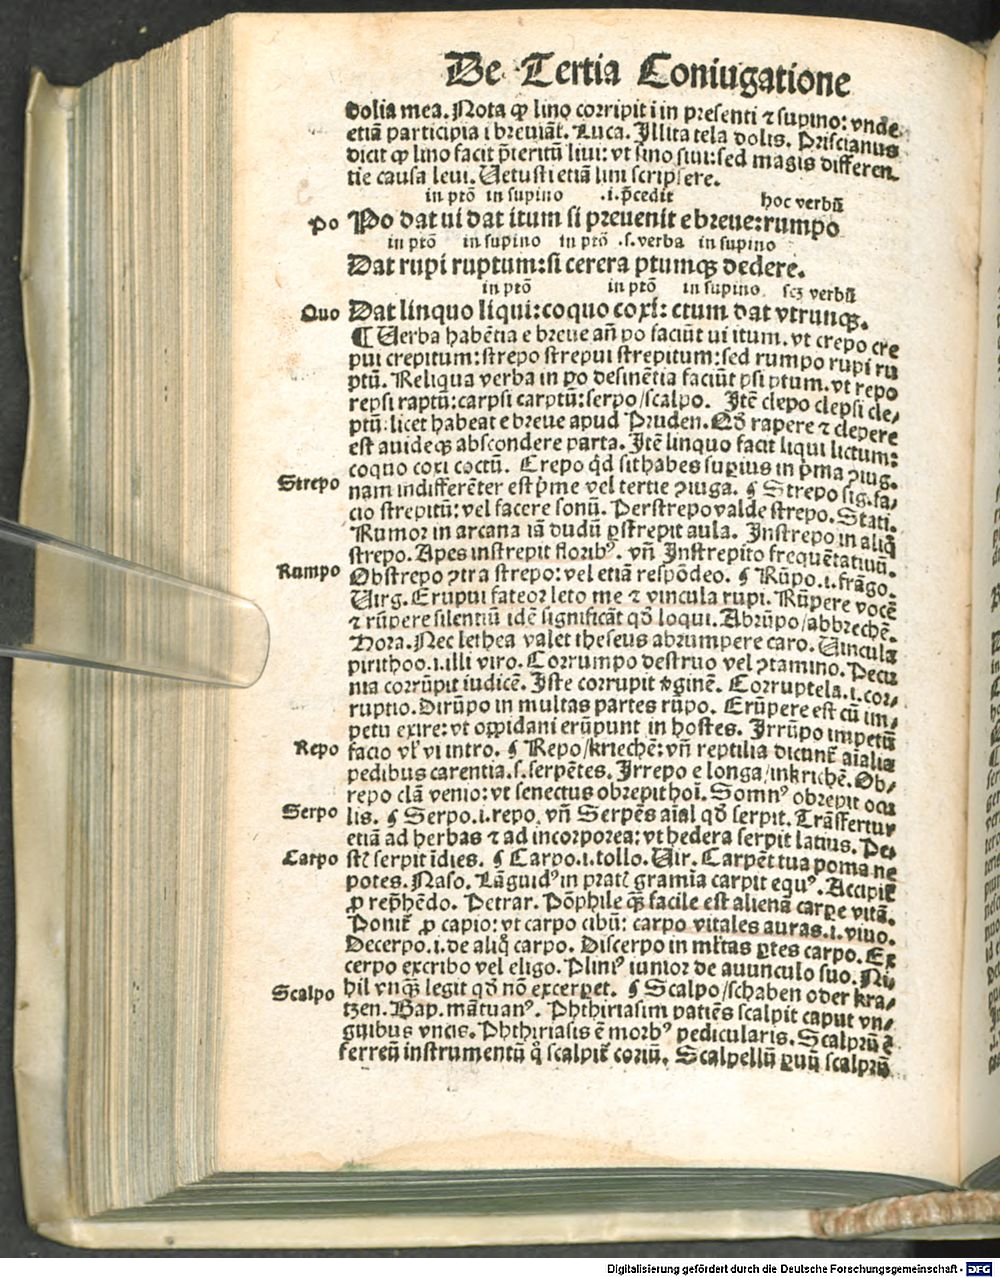 De Tertia Coniugatione
dolia mea. Nota ꝙ lino corripit i in presenti ⁊ supino: vnde
etiã participia i breuiãt. Luca. Illita tela dolis. Priscianus
dicit ꝙ lino facit p̃teritũ liui: vt sino siui: sed magis differen
tie causa leui. Uetusti etiã lini scripsere.
in ptõ in supino .i. p̃cedit hoc verbũ
Po Po dat ui dat itum si preuenit e breue: rumpo
in ptõ in supino in ptõ .s. verba in supino
Dat rupi ruptum: si cetera ptumqꝫ dedere.
in ptõ in ptõ in supino scꝫ verbũ
Quo Dat linquo liqui: coquo coxi: ctum dat vtrunqꝫ.
¶ Uerba habẽtia e breue añ po faciũt ui itum. vt crepo cre
pui crepitum: strepo strepui strepitum: sed rumpo rupi ru
ptũ. Reliqua verba in po desinẽtia faciũt psi ptum. vt repo
repsi raptũ: carpsi carptũ: serpo/scalpo. Itẽ clepo clepsi cle/
ptũ: licet habeat e breue apud Pruden. Qd̃ rapere ⁊ clepere
est auideqꝫ abscondere parta. Itẽ linquo facit liqui lictum:
coquo coxi coctũ. Crepo qd̃ sit habes supius in p̃ma ꝯiug.
Strepo nam indifferẽter est p̃me vel tertie ꝯiuga. ¶ Strepo sig. fa/
cio strepitũ: vel facere sonũ. Perstrepo valde strepo. Stati.
Rumor in arcana iã dudũ ꝑstrepit aula. Instrepo in aliq̃
strepo. Apes instrepit floribꝰ. vñ Instrepito frequẽtatiuũ.
Rumpo Obstrepo ꝯtra strepo: vel etiã respõdeo. ¶ Rũpo .i. frãgo.
Uirg. Erupui fateor leto me ⁊ vincula rupi. Rũpere vocẽ
⁊ rũpere silentiũ idẽ significãt qd̃ loqui. Abrũpo/abbrechẽ.
Hora. Nec lethea valet theseus abrumpere caro. Uincula
pirithoo .i. illi viro. Corrumpo destruo vel ꝯtamino. Pecu
nia corrũpit iudicẽ. Iste corrupit v̾ginẽ. Corruptela .i. cor/
ruptio. Dirũpo in multas partes rũpo. Erũpere est cũ im/
petu exire: vt oppidani erũpunt in hostes. Irrũpo impetũ
Repo facio vl̾ vi intro. ¶ Repo/kriechẽ: vñ reptilia dicunt̃ aĩalia
pedibus carentia .s. serpẽtes. Irrepo e longa/inkrichẽ. Ob/
repo clã venio: vt senectus obrepit hoĩ. Somnꝰ obrepit ocu
Serpo lis. ¶ Serpo .i. repo. vñ Serpẽs aĩal qd̃ serpit. Trãsfertur
etiã ad herbas ⁊ ad incorporea: vt hedera serpit latius. Pe/
Carpo stꝭ serpit ĩdies. ¶ Carpo .i. tollo. Uir. Carpẽt tua poma ne
potes. Naso. Lãguidꝰ in pratꝭ gramĩa carpit equꝰ. Accipit̃
ꝓ rep̃hẽdo. Petrar. Põphile qꝫ facile est alienã carpe vitã.
Ponit̃ ꝓ capio: vt carpo cibũ: carpo vitales auras .i. viuo.
Decerpo .i. de aliq̃ carpo. Discerpo in ml̾tas ꝑtes carpo. Ex
cerpo excribo vel eligo. Pliniꝰ iunior de auunculo suo. Ni/
Scalpo hil vnqꝫ legit qd̃ nõ excerpet. ¶ Scalpo/schaben oder kra/
tzen. Bap. mãtuanꝰ. Phthiriasim patiẽs scalpit caput vn/
guibus vncis. Phthiriasis ẽ morbꝰ pedicularis. Scalprũ ẽ
ferreũ instrumentũ q̊ scalpit̃ coriũ. Scalpellũ ꝑuũ scalprũ
Digitalisierung gefördert durch die Deutsche Forschungsgemeinschaft - DFG